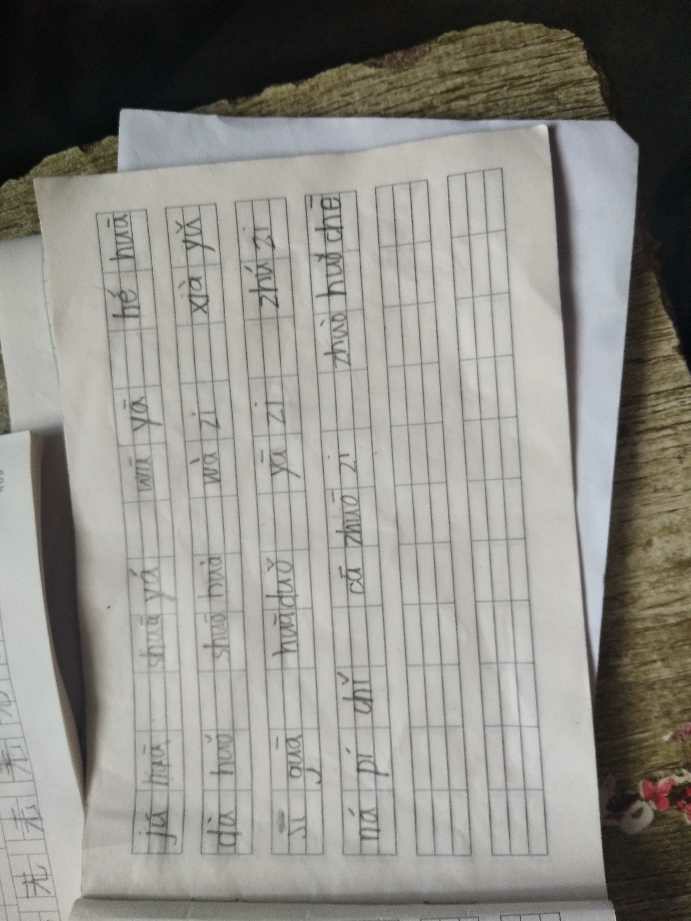 jú huā shuā yá wū yā hé huā
dà huǒ shuō huà wà zi xià yǔ
sī guā huā duǒ yā zi zhú zi
ná pí chǐ cā zhuō zi zhuō huǒ chē
无 无 无